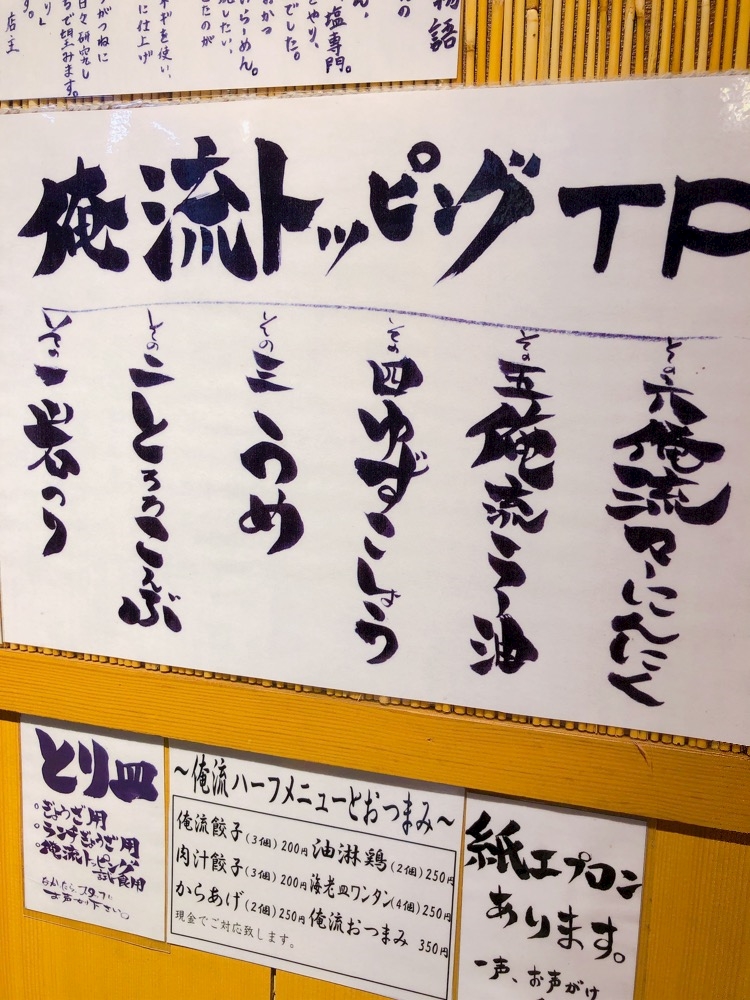 物語
塩専門。
でした。
らーめん。
ギを使い、
に仕上げ
がつねに
日々研究し
店主
俺流トッピング TP
その一 岩のり
その二 とろろこんぶ
その三 うめ
その四 ゆずこしょう
その五 俺流ラー油
その六 俺流マーにんにく
とり皿
・ぎょうざ用
・ランチぎょうざ用
・俺流トッピング
試食用
〜俺流ハーフメニューとおつまみ〜
俺流餃子(3個)200円 油淋鶏(2個)250円
肉汁餃子(3個)200円 海老皿ワンタン(4個)250円
からあげ(2個)250円 俺流おつまみ 350円
現金でご対応致します。
紙エプロン
あります。
一声、お声がけ